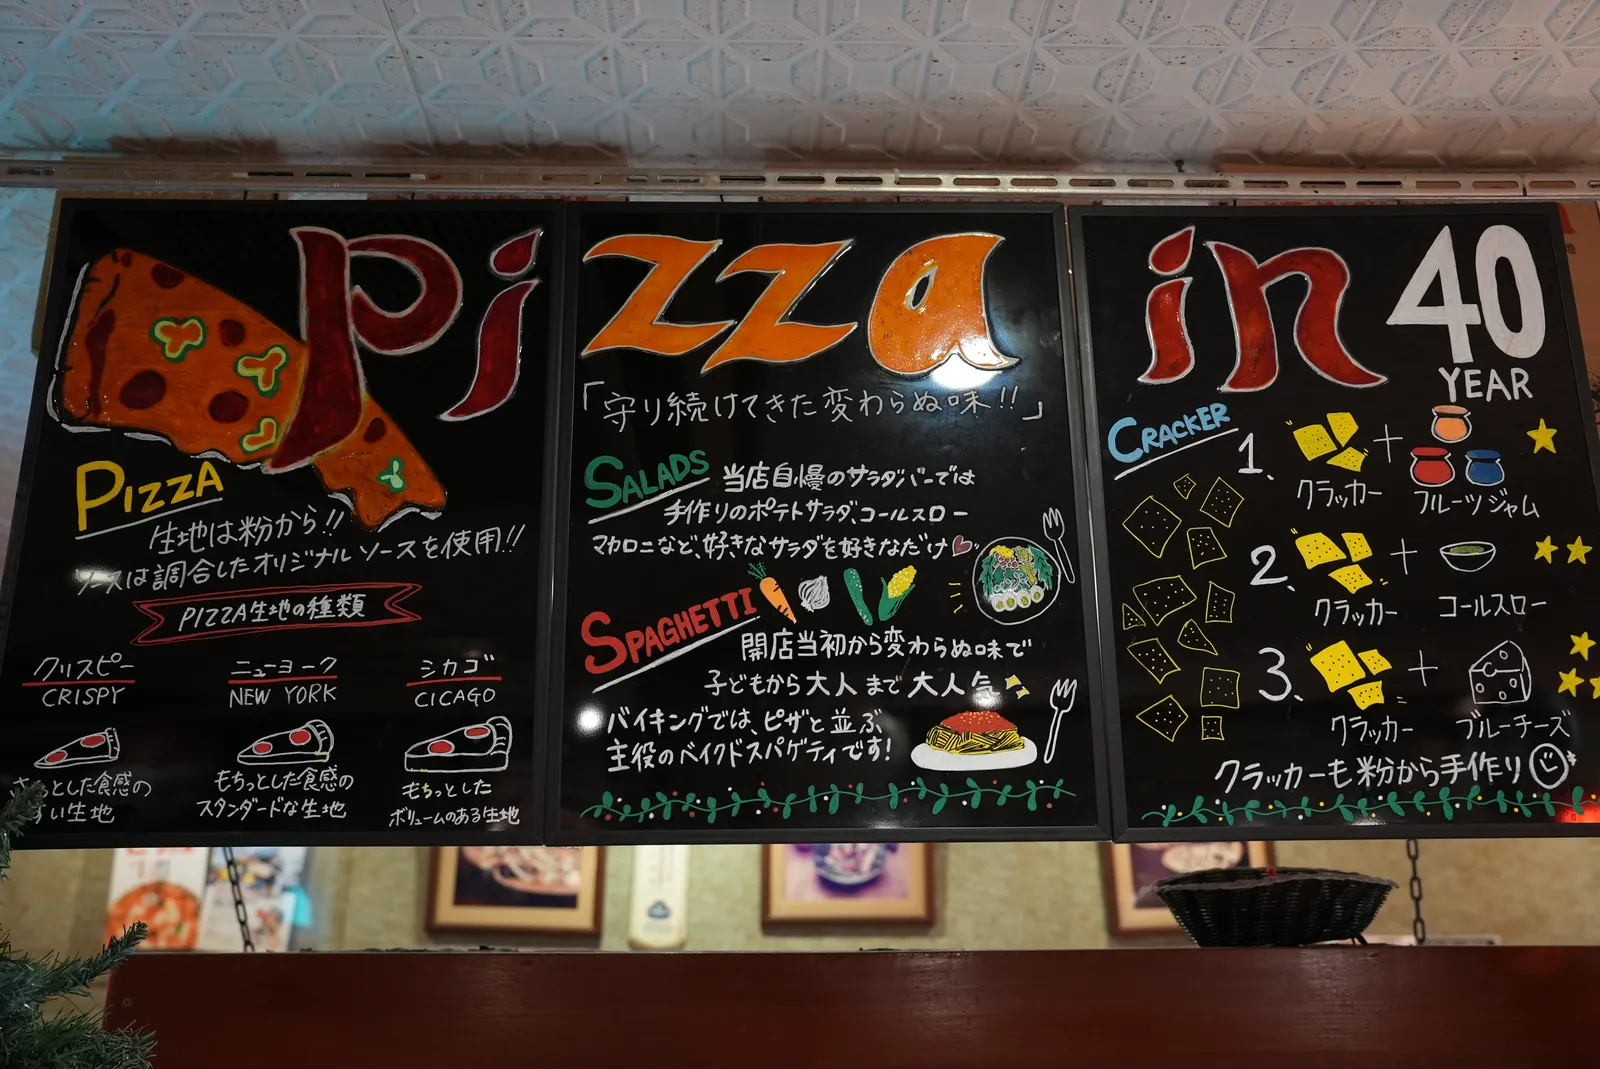 pizza in
40
YEAR
「守り続けてきた変わらぬ味!!」
PIZZA
生地は粉から!!
ソースは調合したオリジナルソースを使用!!
PIZZA生地の種類
クリスピー
CRISPY
さくっとした食感の
すい生地
ニューヨーク
NEW YORK
もちっとした食感の
スタンダードな生地
シカゴ
CICAGO
もちっとした
ボリュームのある生地
SALADS
当店自慢のサラダバーでは
手作りのポテトサラダ、コールスロー
マカロニなど、好きなサラダを好きなだけ
SPAGHETTI
開店当初から変わらぬ味で
子どもから大人まで大人気
バイキングでは、ピザと並ぶ
主役のベイクドスパゲティです!
CRACKER
1. クラッカー + フルーツジャム
2、 クラッカー + コールスロー
3、 クラッカー + ブルーチーズ
クラッカーも粉から手作り